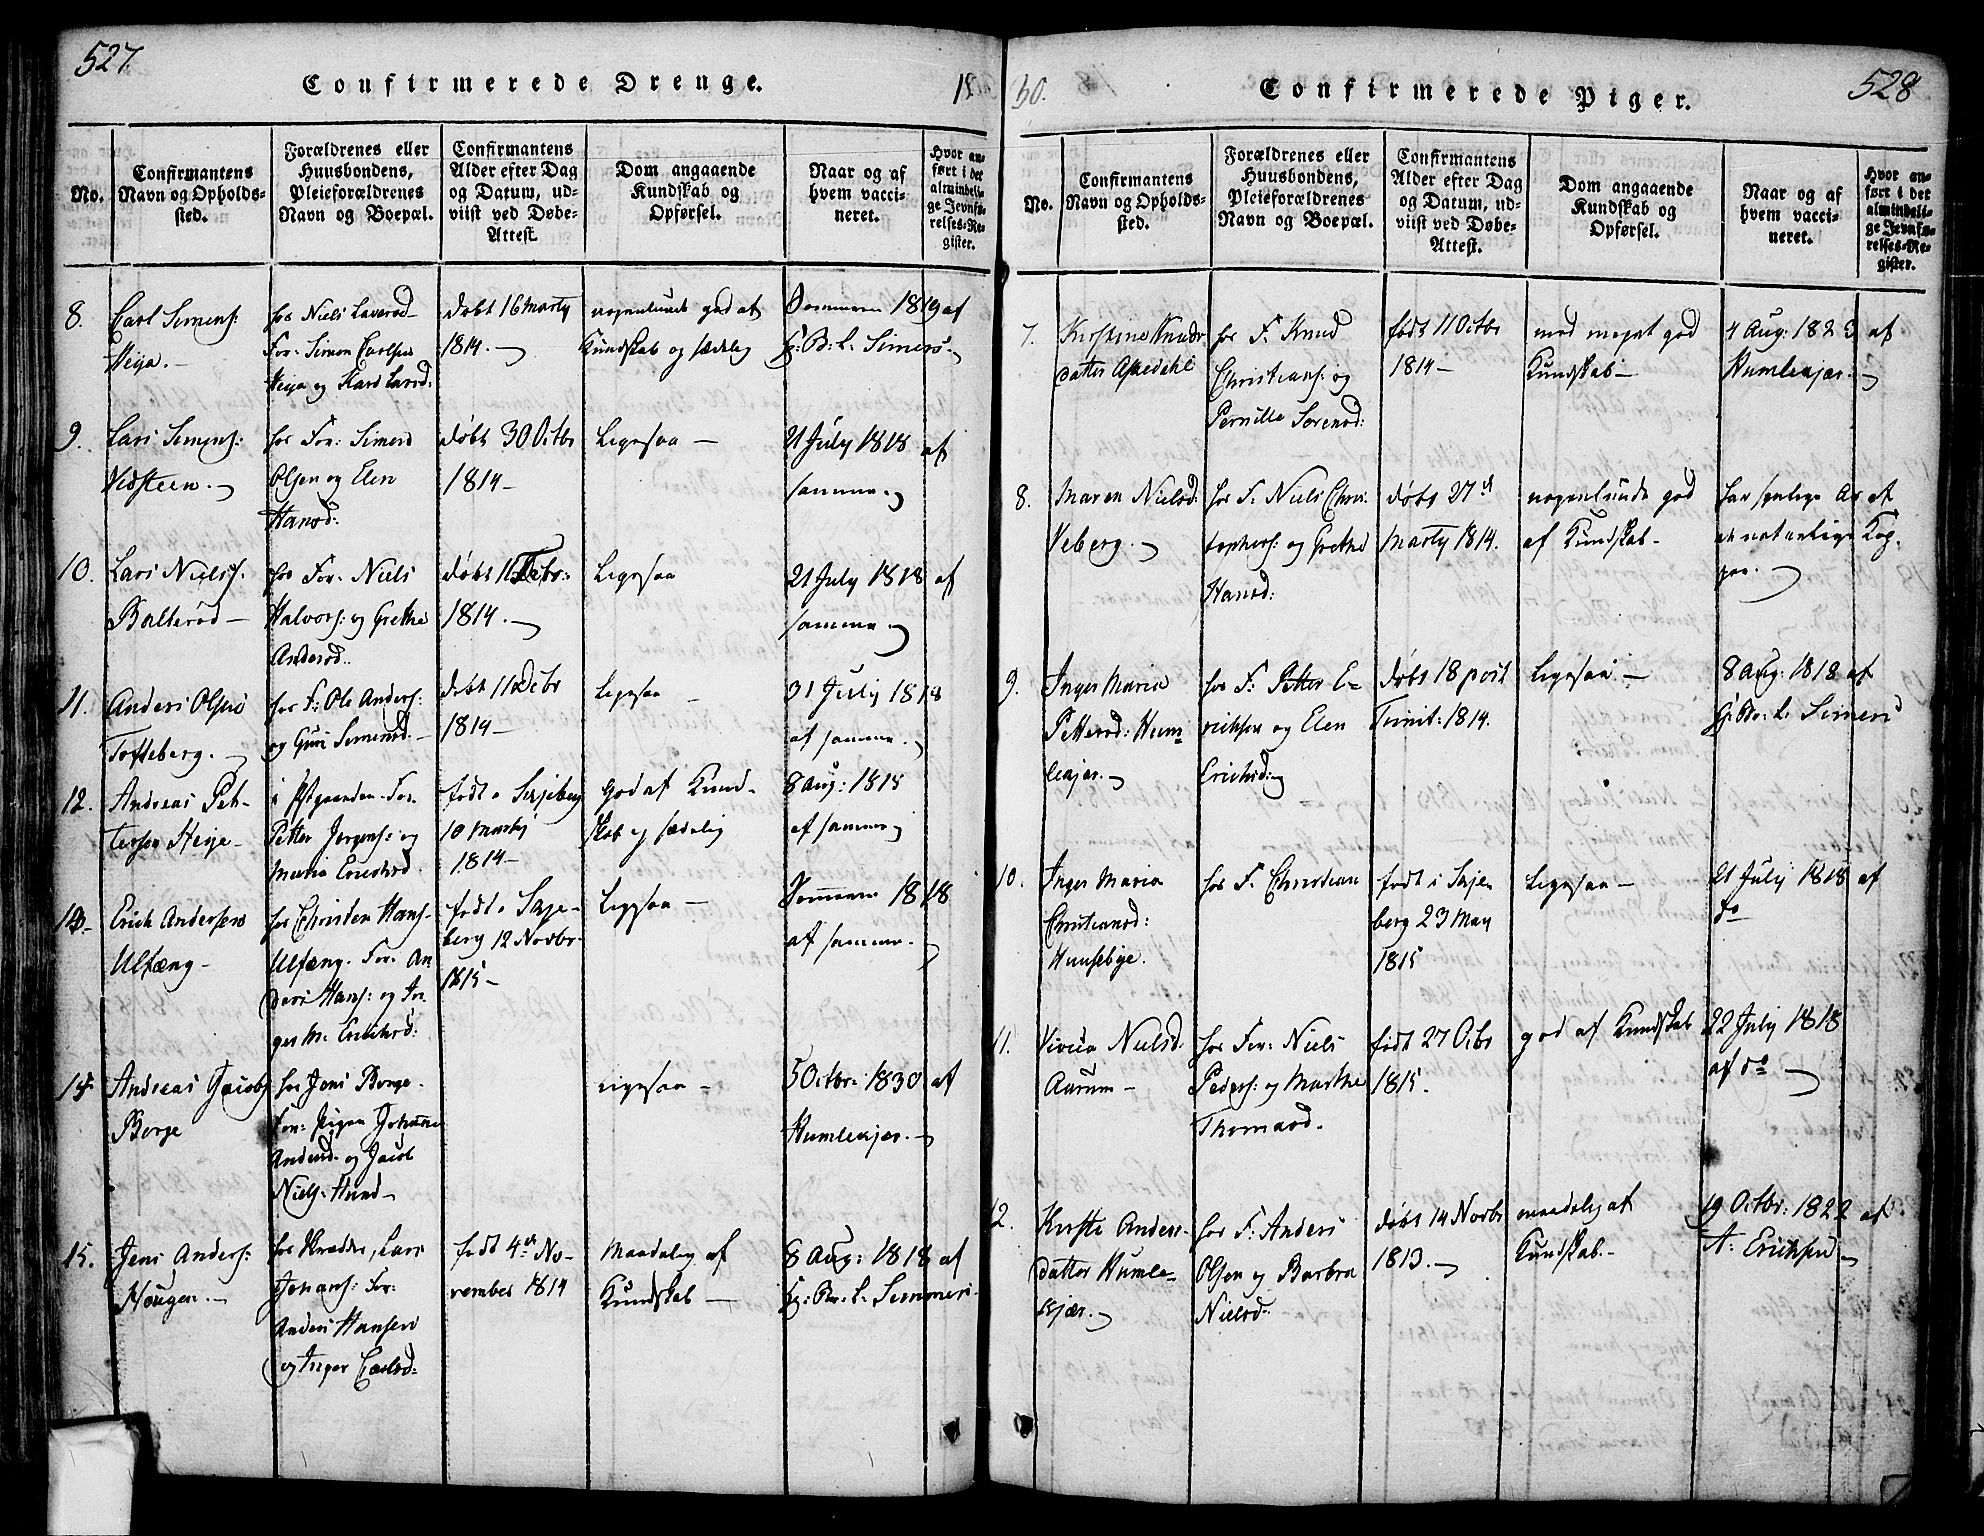 527.
Confirmerede Drenge.
18
No.
Confirmantens
Navn og Opholds-
sted.
Forældrenes eller
Huusbondens,
Pleieforældrenes
Navn og Boepæl.
Confirmantens
Alder efter Dag
og Datum, ud-
viist ved Døbe-
Attest
Dom angaaende
Kundskab og
Opførsel.
Naar og af
hvem vacci-
neret.
Hvor an-
ført i det
almindeli-
ge Jevnfø-
relses-Re-
gister.
8.
Carl Simens:
Heija.
hos Niels Laverød
For: Simon Carlsen
Heija og Kari Larsd:
døbt 16 Marty
1814.
nogenlunde god af
Kundskab og sædelig
Sommeren 1819 af
9.
Lars Simens:
Vidsteen.
hos For: Simen
Olsen og Elen
Hansd:
døbt 30 Octbr
1814
Ligesaa
21 July 1818 af
samme
10.
Lars Niels:
Balterød
hos For: Niels
Halvors: og Grethe
Andersd.
1814.
Ligesaa
21 July 1818 af
samme
11.
Anders Olsen
Tofteberg.
hos F: Ole Anders:
og Guri Simensd.
1814
Ligesaa
31 July 1818
af samme
12.
Andreas Pet-
tersen Heije
Petter Jørgens: og
Maria Erichsd.
født i Skjeberg
10 Marty
1814
God af Kund-
skab og sædelig
8 Aug: 1818
af samme
13.
Erich Andersen
Ulfæng
hos Christen Hans:
Ulfæng. For: An
ders Hans: og In-
ger M. Erichsd:
født i Skje-
berg 12 Novbr
1815
Ligesaa
Sommeren 1818
af samme
14.
Andreas Jacobs
Borge
hos Jens Borge.
For: Pigen Johanne
Andersd. og Jacob
Niels: Hund
Ligesaa
5 Octbr: 1830 af
Humlekjær.
15.
Jens Anders:
Hougen.
Lars
Johans: For:
Anders Hansen
og Inger Carlsd:
født 4de No-
vember 1814
Maadelig af
Kundskab
8 Aug: 1818 af
30.
Confirmerede Piger.
528
No.
Confirmantens
Navn og Opholds-
sted.
Forældrenes eller
Huusbondens,
Pleieforældrenes
Navn og Boepæl.
Confirmantens
Alder efter Dag
og Datum, ud-
viist ved Døbe-
Attest.
Dom angaaende
Kundskab og
Opførsel.
Naar og af
hvem vacci-
neret.
Hvor an-
ført i det
almindeli-
ge Jevnfø-
relses-Re-
gister.
7.
Kirstine Knuds
datter
hos F. Knud
Christians: og
Pernille Sørensd:
født 11 Octbr
1814
med meget god
Kundskab
4 Aug: 1823 af
Humlekjær.
8.
Maren Nielsd:
Veberg.
hos F: Niels Chris-
tophers: og Grethe
Hansd:
døbt 27de
Marty 1814.
nogenlunde god
af Kundskab
har synlige Ar af
de naturlige Kop-
per.
9.
Inger Maria
Pettersd: Hum-
lekjær.
hos F: Petter E-
richsen og Elen
Erichsd:
døbt 18 post
Trinit: 1814.
Ligesaa
8 Aug: 1818 af
10.
Inger Maria
Christiansd:
Huusebye.
hos F. Christian
født i Skje
berg 23 May
1815
Ligesaa
21 July 1818 af
do
11.
Nielsd.
Aarum
hos For: Niels
Peders: og Marthe
Thomasd.
født 27 Octbr
1815.
god af Kundskab
22 July 1818
af do
12.
Kirsti Anders-
datter Humle-
kjær.
hos F: Anders
Olsen og Barbra
Nielsd:
døbt 14 Novbr
1813.
maadelig af
Kundskab.
19 Octbr: 1822 af
A: Erichsen